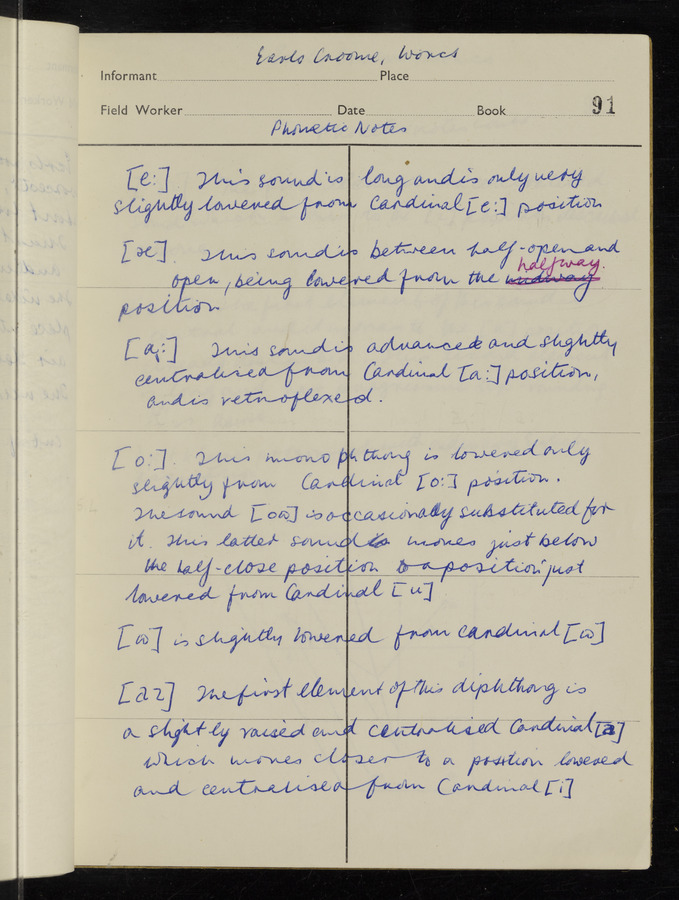 Earls Croome, Worcs
Informant Place
Field Worker Date Book 91
Phonetic Notes
[e:] This sound is long and is only very
slightly lowered from Cardinal [e:] position
[æ]. This sound is between half-open and
halfway.
open, being lowered from the midway
position
[ɑ:] This sound is advanced and slightly
centralised from Cardinal [a:] position,
and is retroflexed.
[o:]. This monophthong is lowered only
slightly from Cardinal [o:] position.
The sound [oɷ] is occasionally substituted for
it. This latter sound moves just below
the half-close position to a position just
lowered from Cardinal [u]
[ɷ] is slightly lowered from cardinal [ɷ]
[aɪ] The first element of this diphthong is
a slightly raised and centralised Cardinal [a]
which moves closer to a position lowered
and centralised from Cardinal [i]